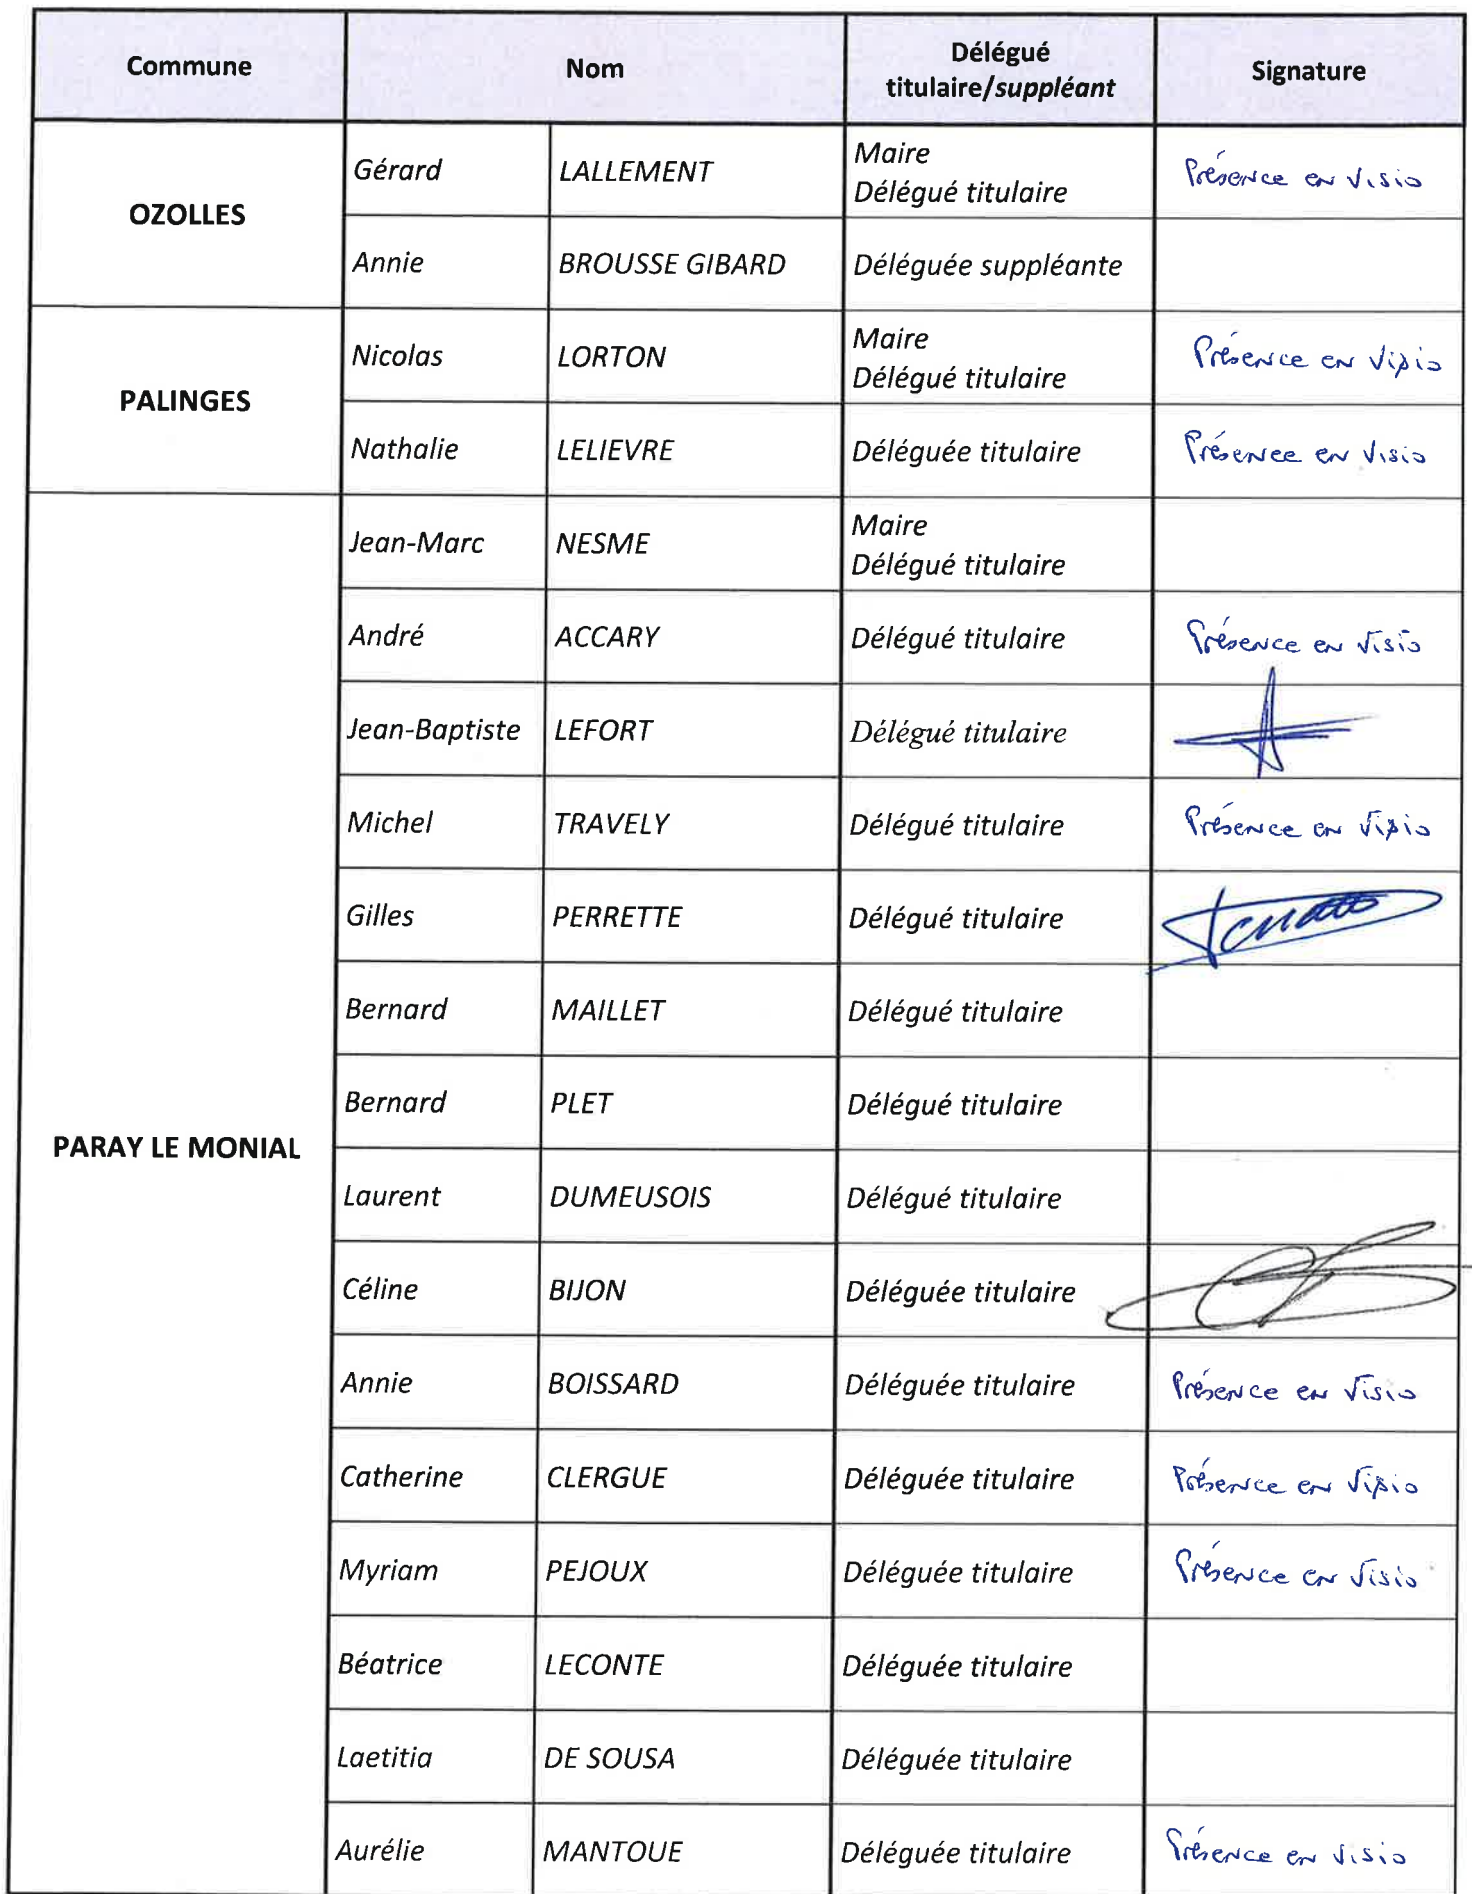 Commune Nom Délégué titulaire/suppléant Signature
OZOLLES
Gérard LALLEMENT Maire Délégué titulaire Présence en visio
Annie BROUSSE GIBARD Déléguée suppléante
PALINGES
Nicolas LORTON Maire Délégué titulaire Présence en visio
Nathalie LELIEVRE Déléguée titulaire Présence en visio
PARAY LE MONIAL
Jean-Marc NESME Maire Délégué titulaire
André ACCARY Délégué titulaire Présence en visio
Jean-Baptiste LEFORT Délégué titulaire
Michel TRAVELY Délégué titulaire Présence en visio
Gilles PERRETTE Délégué titulaire
Bernard MAILLET Délégué titulaire
Bernard PLET Délégué titulaire
Laurent DUMEUSOIS Délégué titulaire
Céline BIJON Déléguée titulaire
Annie BOISSARD Déléguée titulaire Présence en visio
Catherine CLERGUE Déléguée titulaire Présence en visio
Myriam PEJOUX Déléguée titulaire Présence en visio
Béatrice LECONTE Déléguée titulaire
Laetitia DE SOUSA Déléguée titulaire
Aurélie MANTOUE Déléguée titulaire Présence en visio